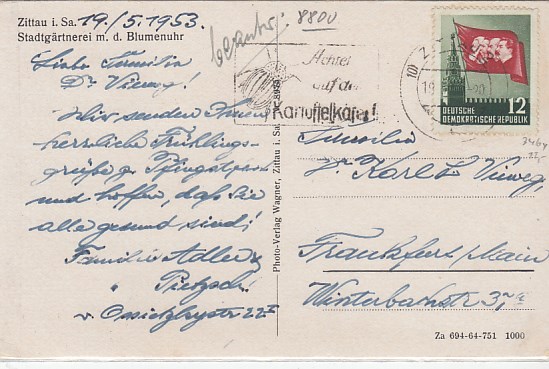 Zittau i. Sa. 19./5.1953.
Stadtgärtnerei m. d. Blumenuhr
beantw. 8800
Liebe Familie
Dr. Vieweg!
Wir senden Ihnen
herzliche Frühlings-
grüße z. Pfingstfeste
und hoffen, daß Sie
alle gesund sind!
Familie Adler
" Pietzsch
v. Ossietzkystr 22
Achtet
auf den
Kartoffelkäfer!
DEUTSCHE
DEMOKRATISCHE REPUBLIK
12
Familie
Dr. Karl Vieweg,
Frankfurt/Main
Winterbachstr 37
Photo-Verlag Wagner, Zittau i. Sa.
Za 694-64-751 1000